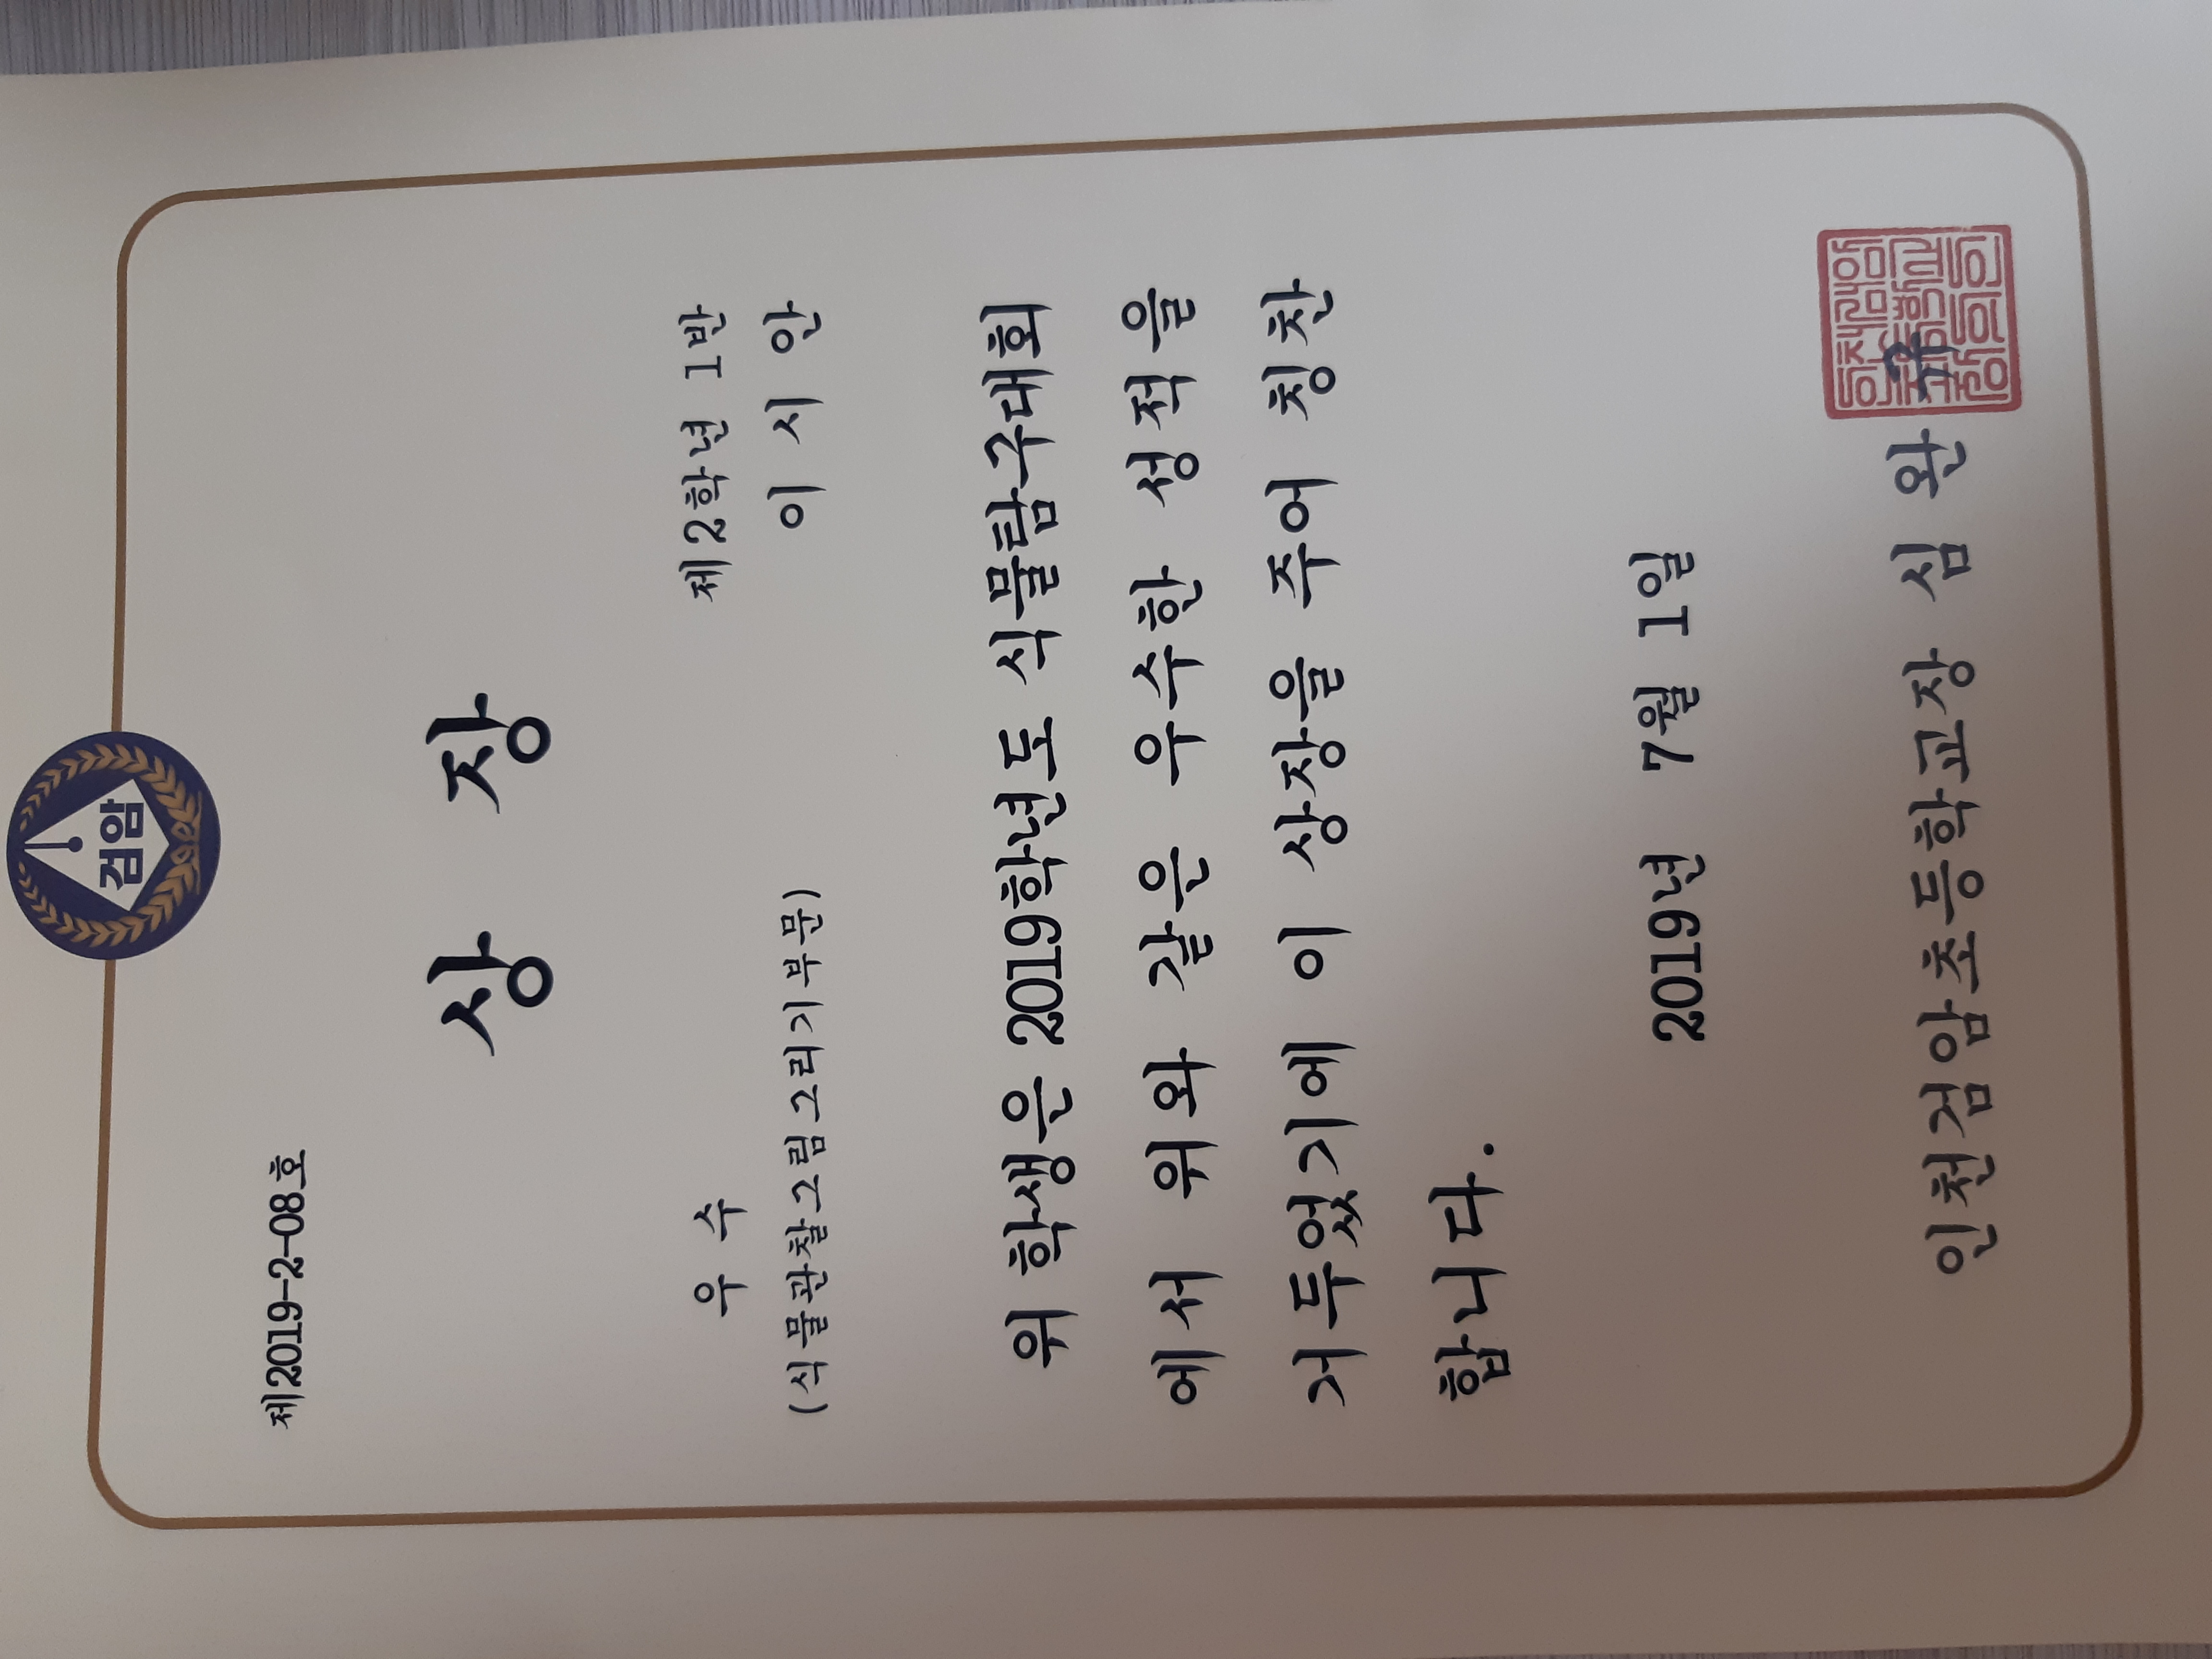 검암
제2019-2-08호
상 장
우 수
(식물관찰그림그리기부문)
제2학년 1반
이 시 안
위 학생은 2019학년도 식물탐구대회
에서 위와 같은 우수한 성적을
거두었기에 이 상장을 주어 칭찬
합니다.
2019년 7월 1일
인천검암초등학교장 심 완